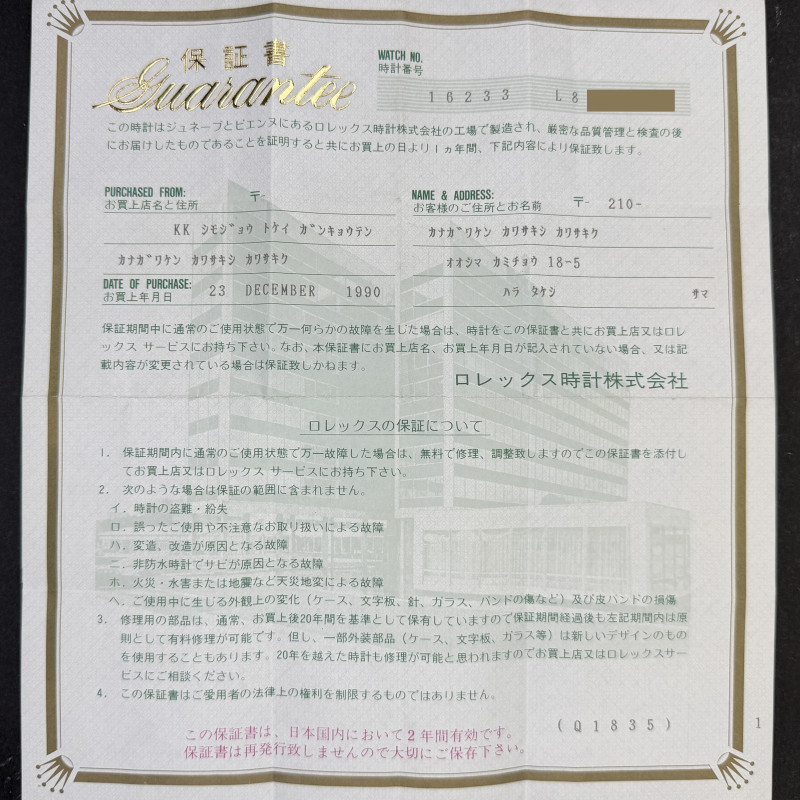 保証書
Guarantee
WATCH NO.
時計番号
16233 L8
この時計はジュネーブとビエンヌにあるロレックス時計株式会社の工場で製造され、厳密な品質管理と検査の後
にお届けしたものであることを証明すると共にお買上の日より1ヵ年間、下記内容により保証致します。
PURCHASED FROM: 〒-
お買上店名と住所
KK シモジョウ トケイ ガンキョウテン
カナガワケン カワサキシ カワサキク
DATE OF PURCHASE:
お買上年月日
23 DECEMBER 1990
NAME & ADDRESS:
お客様のご住所とお名前 〒- 210-
カナガワケン カワサキシ カワサキク
オオシマ カミチョウ 18-5
ハラ タケシ サマ
保証期間中に通常のご使用状態で万一何らかの故障を生した場合は、時計をこの保証書と共にお買上店又はロレ
ックス サービスにお持ち下さい。なお、本保証書にお買上店名、お買上年月日が記入されていない場合、又は記
載内容が変更されている場合は保証致しかねます。
ロレックス時計株式会社
ロレックスの保証について
1. 保証期間内に通常のご使用状態で万一故障した場合は、無料で修理、調整致しますのでこの保証書を添付し
てお買上店又はロレックス サービスにお持ち下さい。
2. 次のような場合は保証の範囲に含まれません。
イ. 時計の盗難・紛失
ロ. 誤ったご使用や不注意なお取り扱いによる故障
ハ. 変造、改造が原因となる故障
ニ. 非防水時計でサビが原因となる故障
ホ. 火災・水害または地震など天災地変による故障
ヘ. ご使用中に生じる外観上の変化（ケース、文字板、針、ガラス、バンドの傷など）及び皮バンドの損傷
3. 修理用の部品は、通常、お買上後20年間を基準として保有していますので保証期間経過後も左記期間内は原
則として有料修理が可能です。但し、一部外装部品（ケース、文字板、ガラス等）は新しいデザインのもの
を使用することもあります。20年を越えた時計も修理が可能と思われますのでお買上店又はロレックスサー
ビスにご相談ください。
4. この保証書はご愛用者の法律上の権利を制限するものではありません。
(Q1835) 1
この保証書は、日本国内において2年間有効です。
保証書は再発行致しませんので大切にご保存下さい。